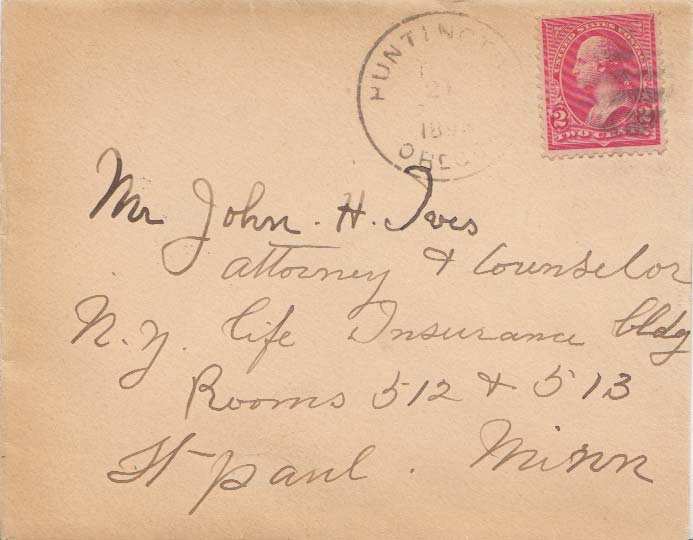 UNITED STATES POSTAGE
2 2
TWO CENTS
21
Mr John. H. Ives
attorney & Counselor
N. Y. life Insurance bldg
Rooms 512 & 513
St paul. Minn